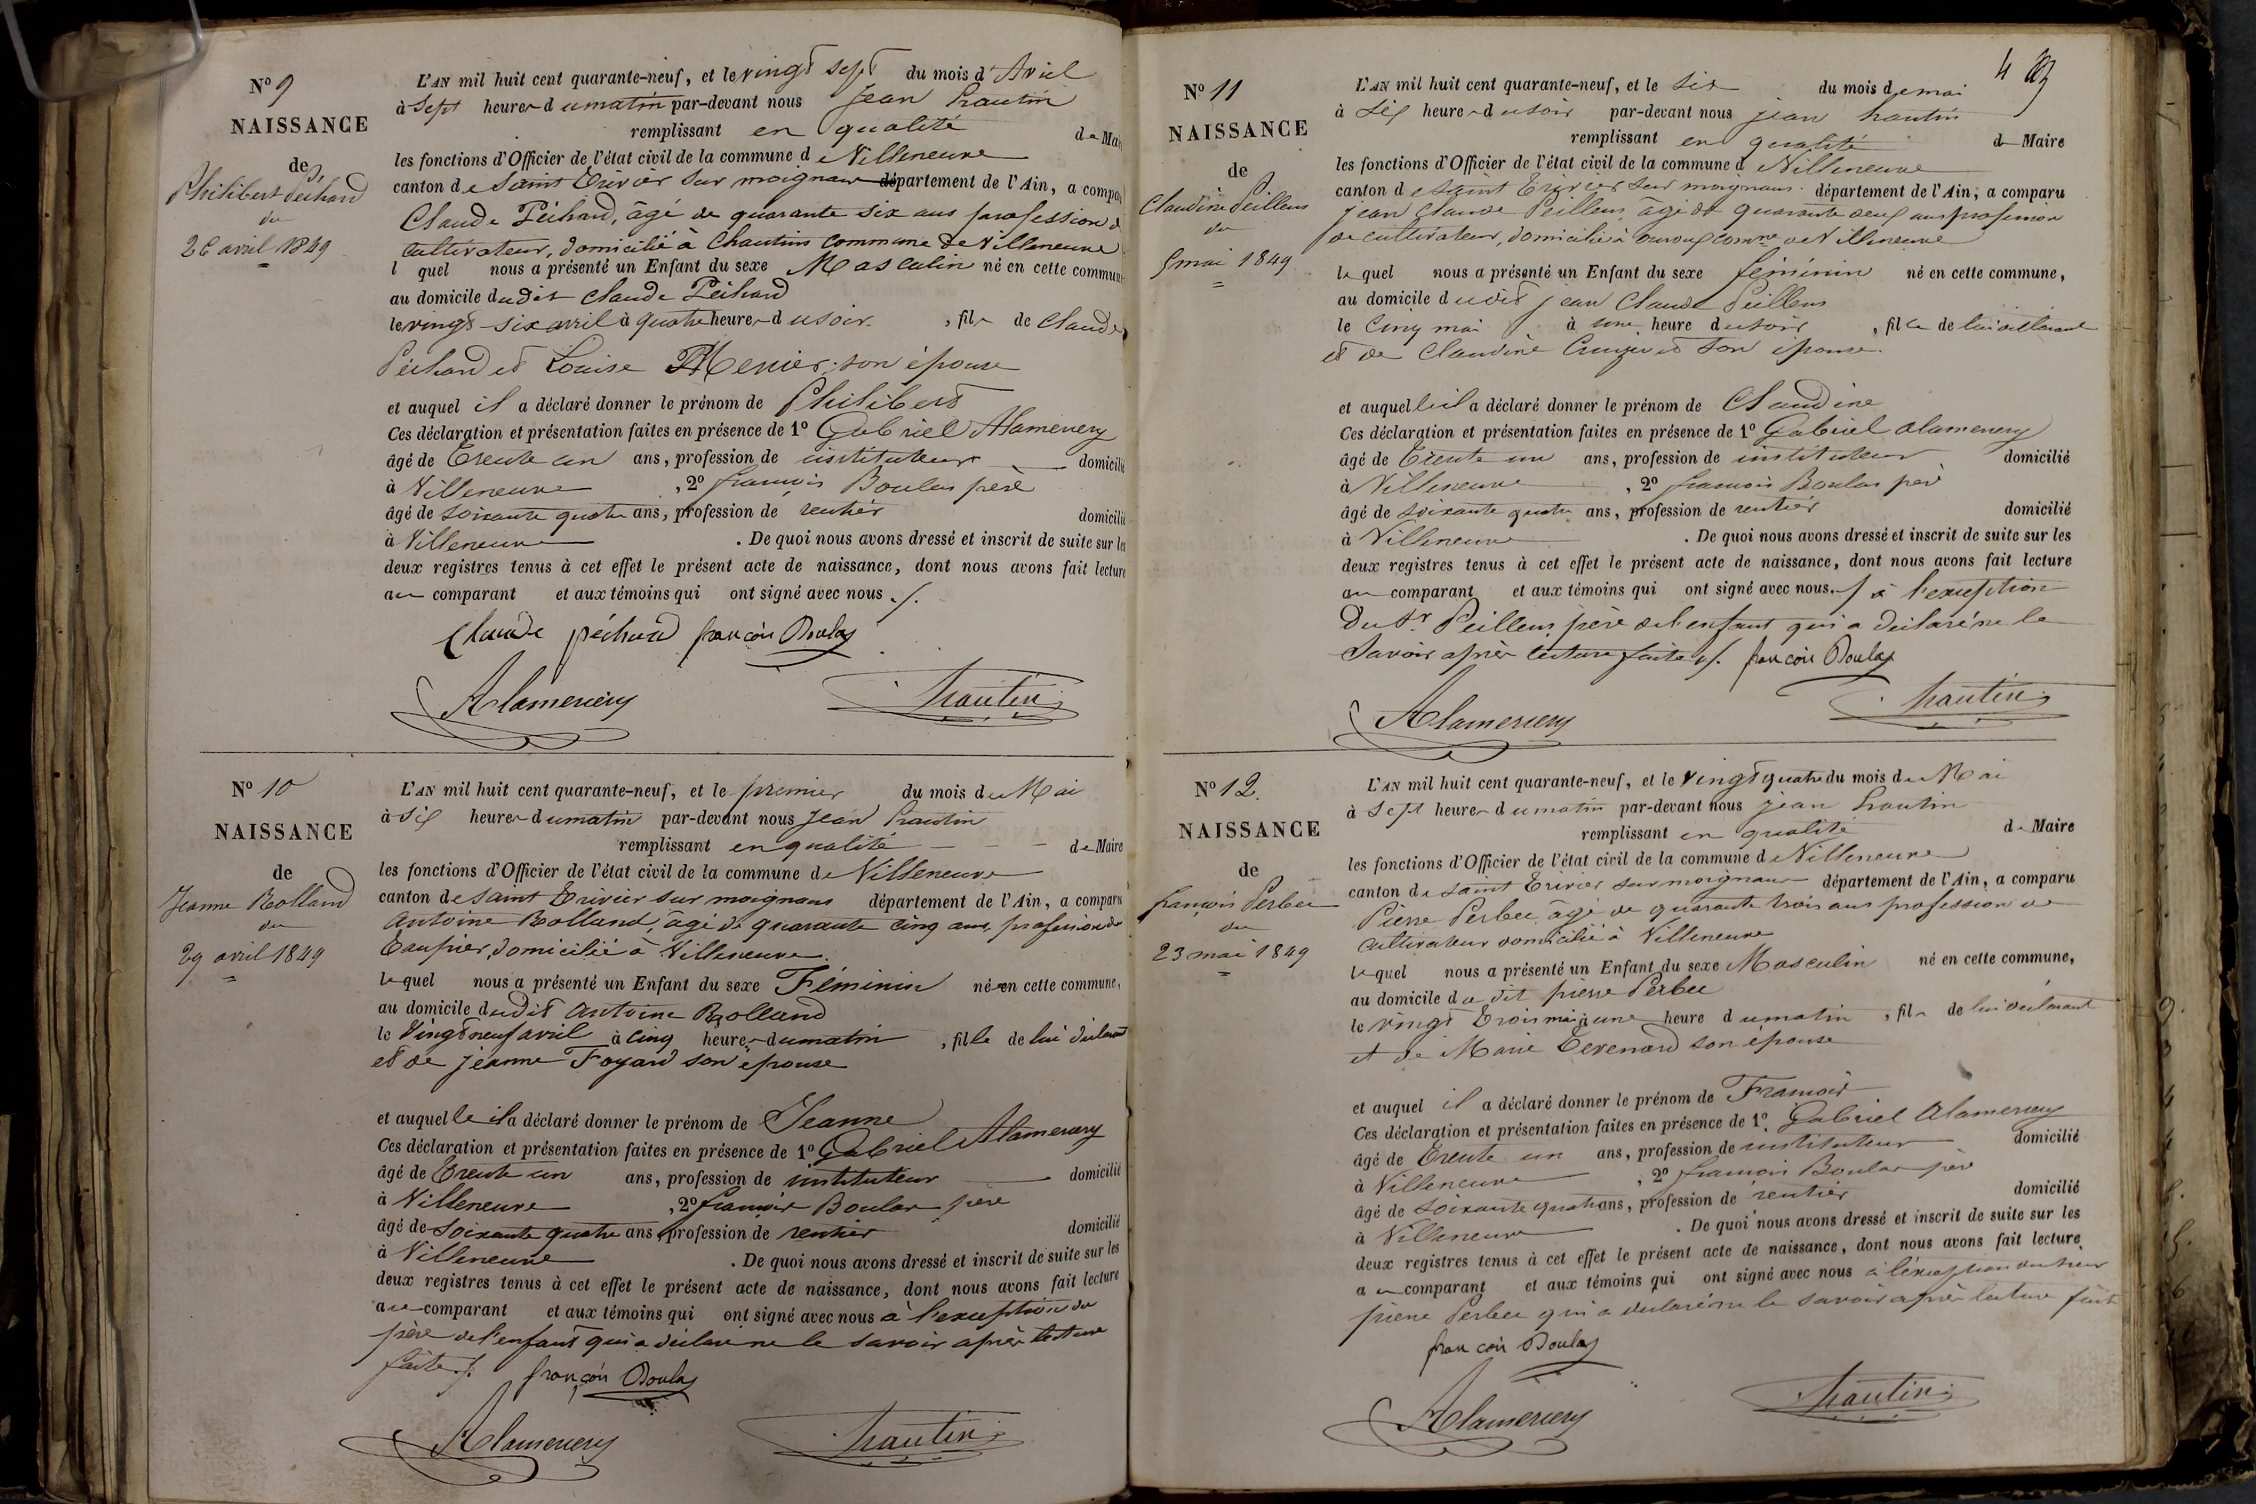 N° 9
NAISSANCE
de
Philibert Péchard
du
26 avril 1849
L'AN mil huit cent quarante-neuf, et le vingt sept du mois d'Avril
à sept heures du matin par-devant nous Jean
remplissant en qualité de Mai
les fonctions d'Officier de l'état civil de la commune de Villeneuve
canton de saint Trivier sur moignans département de l'Ain, a compa
Claude Péchard, âgé de quarante six ans profession d
cultivateur, domicilié à Chantins commune de Villeneuve
l quel nous a présenté un Enfant du sexe Masculin né en cette commun
au domicile dudit Claude Péchard
le vingt-six avril à quatre heures du soir , fils de Claude
Péchard et Louise son épouse
et auquel il a déclaré donner le prénom de Philibert
Ces déclaration et présentation faites en présence de 1° Gabriel Alamercery
âgé de trente un ans, profession de instituteur domicilié
à Villeneuve , 2° françois Boulas père
âgé de soixante quatre ans, profession de rentier domicilié
à Villeneuve . De quoi nous avons dressé et inscrit de suite sur les
deux registres tenus à cet effet le présent acte de naissance, dont nous avons fait lecture
au comparant et aux témoins qui ont signé avec nous ./.
Claude péchard françois Boulas
Alamercery
N° 10
NAISSANCE
de
Jeanne Rolland
du
29 avril 1849
L'AN mil huit cent quarante-neuf, et le premier du mois de Mai
à six heures du matin par-devant nous Jean
remplissant en qualité de Maire
les fonctions d'Officier de l'état civil de la commune de Villeneuve
canton de saint Trivier sur moignans département de l'Ain, a comparu
Antoine Rolland, âgé de quarante cinq ans, profession de
taupier, domicilié à Villeneuve
lequel nous a présenté un Enfant du sexe Féminin né en cette commune,
au domicile dudit Antoine Rolland
le vingt neuf avril à cinq heures du matin , fille de lui déclarant
et de jeanne Foyard son épouse
et auquelle il a déclaré donner le prénom de Jeanne
Ces déclaration et présentation faites en présence de 1° Gabriel Alamercery
âgé de trente un ans, profession de instituteur domicilié
à Villeneuve , 2° françois Boulas père
âgé de soixante quatre ans, profession de rentier domicilié
à Villeneuve . De quoi nous avons dressé et inscrit de suite sur les
deux registres tenus à cet effet le présent acte de naissance, dont nous avons fait lecture
au comparant et aux témoins qui ont signé avec nous à l'exception du
père de l'enfant qui a déclaré ne le savoir après lecture
faite ./. françois Boulas
Alamercery
4
N° 11
NAISSANCE
de
Claudine Peilleux
du
5 mai 1849
L'AN mil huit cent quarante-neuf, et le six du mois de mai
à six heures du soir par-devant nous jean
remplissant en qualité de Maire
les fonctions d'Officier de l'état civil de la commune de Villeneuve
canton de saint Trivier sur moignans département de l'Ain, a comparu
jean Claude Peilleux âgé de quarante deux ans profession
de cultivateur, domicilié à comne de Villeneuve
lequel nous a présenté un Enfant du sexe féminin né en cette commune,
au domicile dudit jean Claude Peilleux
le cinq mai à une heure du soir , fille de lui déclarant
et de Claudine son épouse
et auquelle il a déclaré donner le prénom de Claudine
Ces déclaration et présentation faites en présence de 1° Gabriel alamercery
âgé de trente un ans, profession de instituteur domicilié
à Villeneuve , 2° françois Boulas père
âgé de soixante quatre ans, profession de rentier domicilié
à Villeneuve . De quoi nous avons dressé et inscrit de suite sur les
deux registres tenus à cet effet le présent acte de naissance, dont nous avons fait lecture
au comparant et aux témoins qui ont signé avec nous ./. à l'exception
du sr Peilleux père de l'enfant qui a déclaré ne le
savoir après lecture faite ./. françois Boulas
Alamercery
N° 12.
NAISSANCE
de
françois Perbec
du
23 mai 1849
L'AN mil huit cent quarante-neuf, et le vingt quatre du mois de Mai
à sept heures du matin par-devant nous jean
remplissant en qualité de Maire
les fonctions d'Officier de l'état civil de la commune de Villeneuve
canton de saint Trivier sur moignans département de l'Ain, a comparu
Pierre Perbec âgé de quarante trois ans profession de
cultivateur domicilié à Villeneuve
lequel nous a présenté un Enfant du sexe Masculin né en cette commune,
au domicile du dit pierre Perbec
le vingt trois mai à une heure du matin , fils de lui déclarant
et de Marie son épouse
et auquel il a déclaré donner le prénom de François
Ces déclaration et présentation faites en présence de 1° Gabriel Alamercery
âgé de trente un ans, profession de instituteur domicilié
à Villeneuve , 2° françois Boulas père
âgé de soixante quatre ans, profession de rentier domicilié
à Villeneuve . De quoi nous avons dressé et inscrit de suite sur les
deux registres tenus à cet effet le présent acte de naissance, dont nous avons fait lecture
au comparant et aux témoins qui ont signé avec nous à l'exception du sieur
pierre Perbec qui a déclaré ne le savoir après lecture faite
françois Boulas
Alamercery